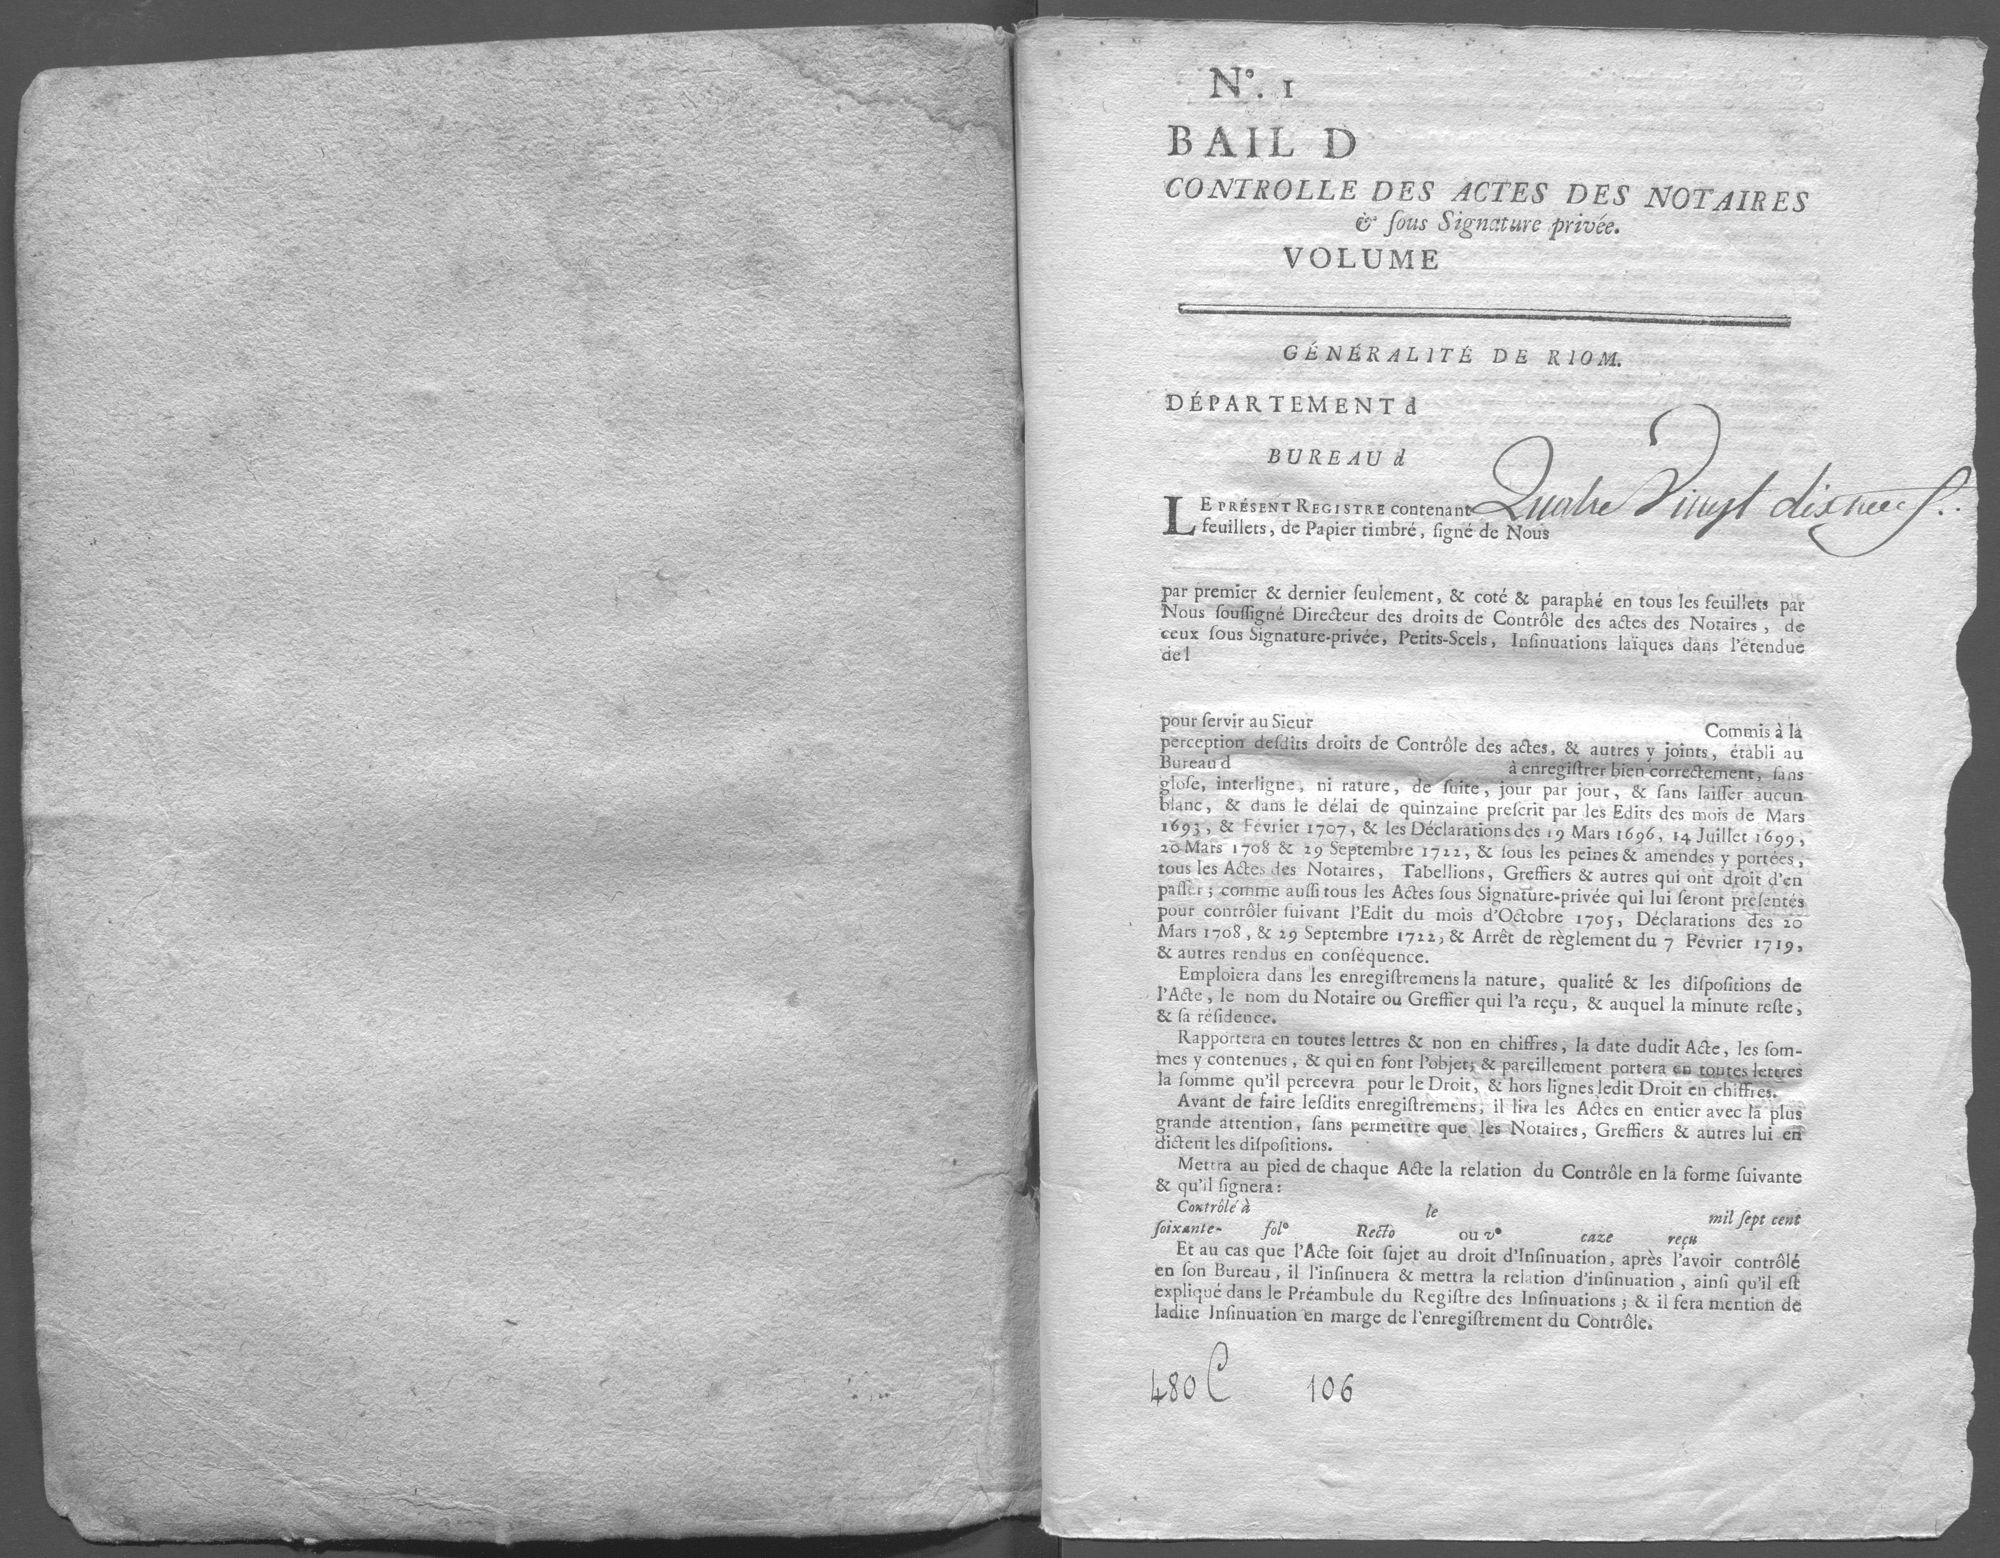 Nº. 1
BAIL D
CONTROLLE DES ACTES DES NOTAIRES
& ſous Signature privée.
VOLUME
GÉNÉRALITÉ DE RIOM.
DÉPARTEMENT d
BUREAU d
LE PRÉSENT REGISTRE contenant Quatre Vingt dix neuf..
feuillets, de Papier timbré, ſigné de Nous
par premier & dernier ſeulement, & coté & paraphé en tous les feuillets par
Nous ſouſſigné Directeur des droits de Contrôle des actes des Notaires, de
ceux ſous Signature-privée, Petits-Scels, Inſinuations laïques dans l'étendue
de l
pour ſervir au Sieur Commis à la
perception deſdits droits de Contrôle des actes, & autres y joints, établi au
Bureau d à enregiſtrer bien correctement, ſans
gloſe, interligne, ni rature, de ſuite, jour par jour, & ſans laiſſer aucun
blanc, & dans le délai de quinzaine preſcrit par les Edits des mois de Mars
1693, & Février 1707, & les Déclarations des 19 Mars 1696, 14 Juillet 1699,
20 Mars 1708 & 29 Septembre 1722, & ſous les peines & amendes y portées,
tous les Actes des Notaires, Tabellions, Greffiers & autres qui ont droit d'en
paſſer; comme auſſi tous les Actes ſous Signature-privée qui lui ſeront préſentés
pour contrôler ſuivant l'Edit du mois d'Octobre 1705, Déclarations des 20
Mars 1708, & 29 Septembre 1722, & Arrêt de règlement du 7 Février 1719,
& autres rendus en conſéquence.
Emploiera dans les enregiſtremens la nature, qualité & les diſpoſitions de
l'Acte, le nom du Notaire ou Greffier qui l'a reçu, & auquel la minute reſte,
& ſa réſidence.
Rapportera en toutes lettres & non en chiffres, la date dudit Acte, les ſom-
mes y contenues, & qui en font l'objet; & pareillement portera en toutes lettres
la ſomme qu'il percevra pour le Droit, & hors lignes ledit Droit en chiffres.
Avant de faire leſdits enregiſtremens, il lira les Actes en entier avec la plus
grande attention, ſans permettre que les Notaires, Greffiers & autres lui en
dictent les diſpoſitions.
Mettra au pied de chaque Acte la relation du Contrôle en la forme ſuivante
& qu'il ſignera:
Contrôlé à le mil ſept cent
ſoixante- folº Recto ou vº caze reçu
Et au cas que l'Acte ſoit ſujet au droit d'Inſinuation, après l'avoir contrôlé
en ſon Bureau, il l'inſinuera & mettra la relation d'inſinuation, ainſi qu'il eſt
expliqué dans le Préambule du Regiſtre des Inſinuations; & il fera mention de
ladite Inſinuation en marge de l'enregiſtrement du Contrôle.
480 C 106